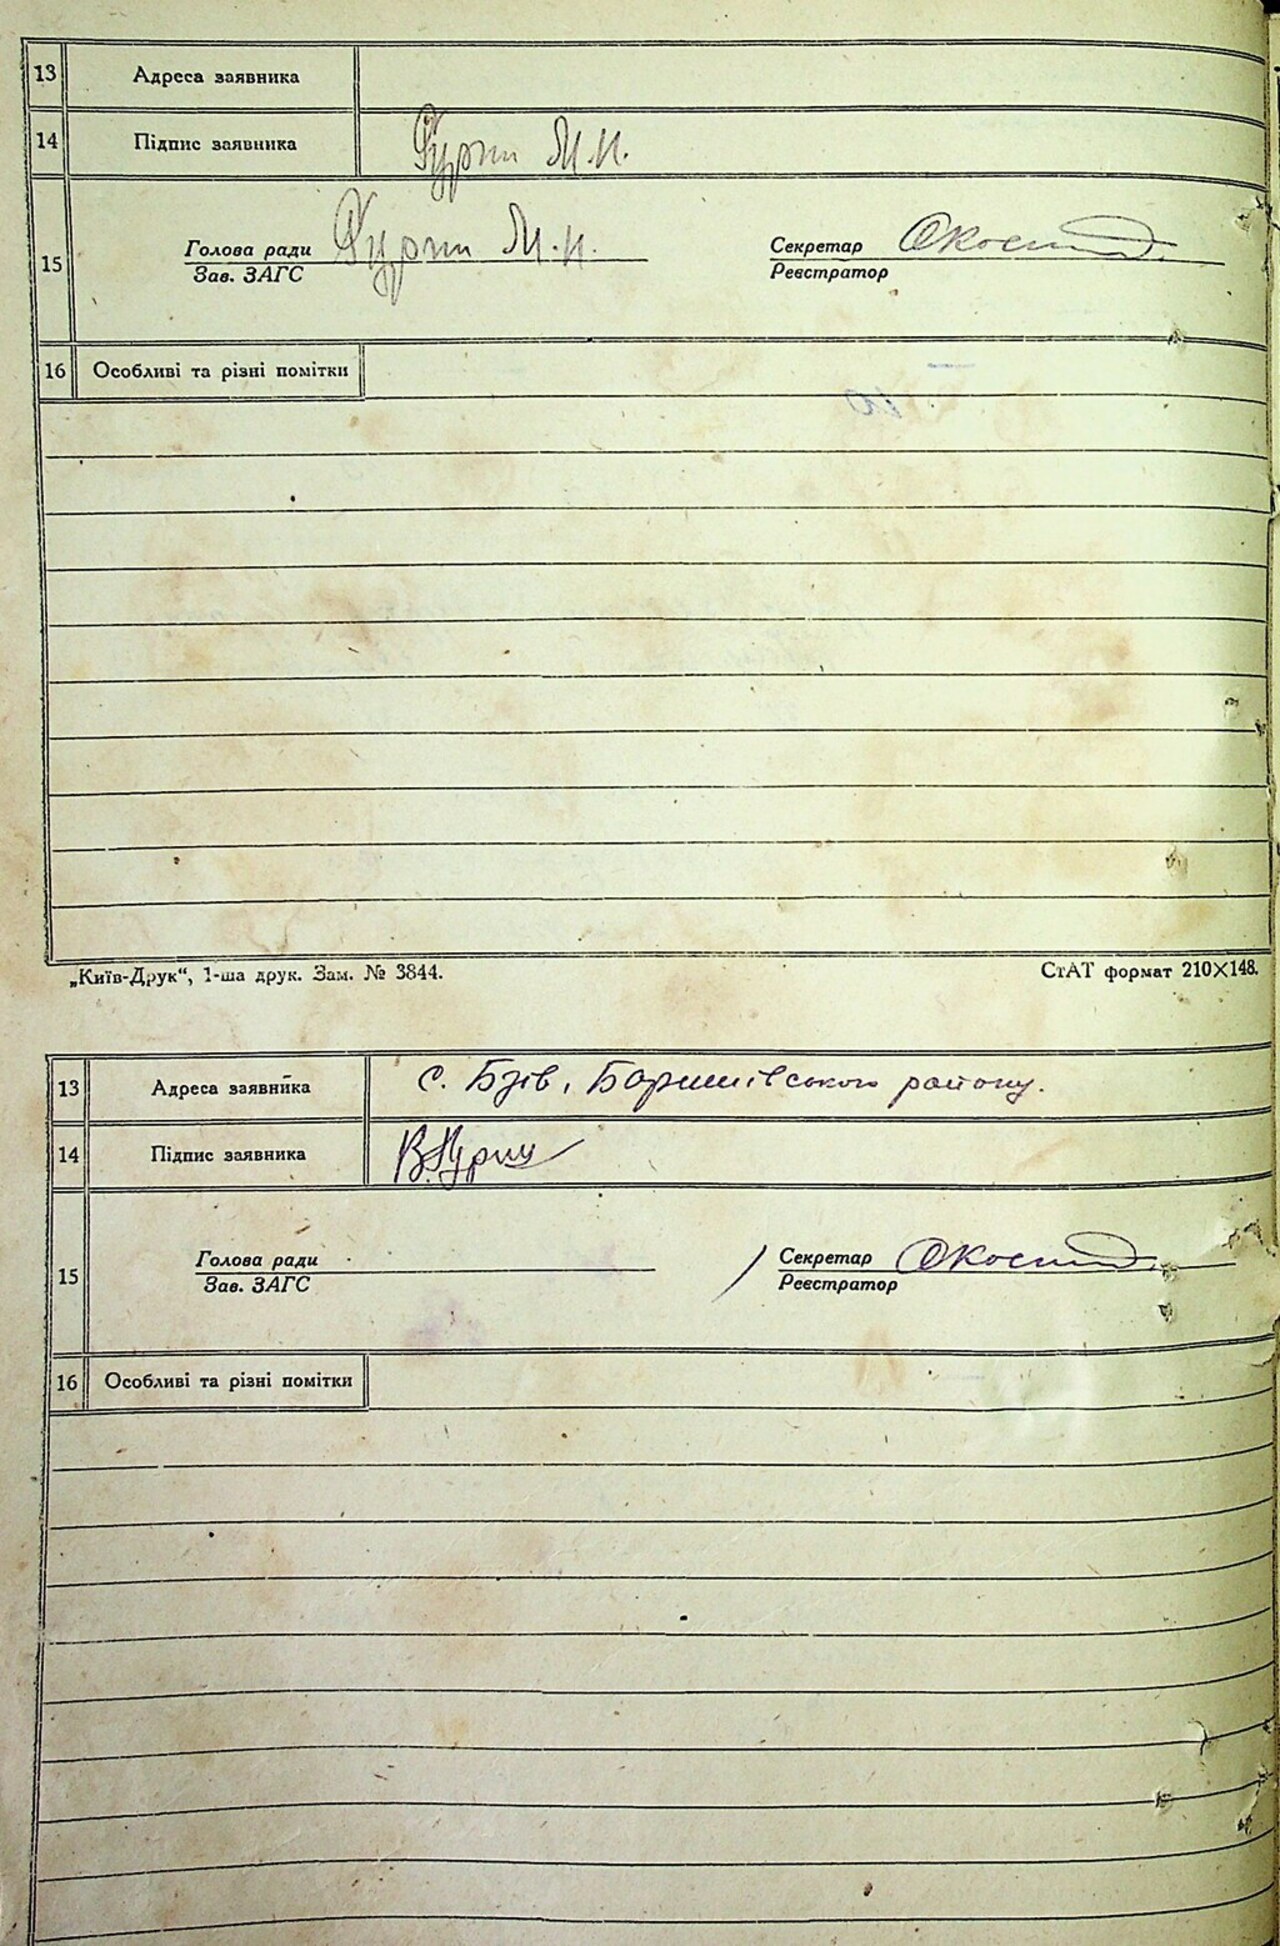 13 Адреса заявника
14 Підпис заявника М.И.
15 Голова ради М.И. Секретар
Зав. ЗАГС Реєстратор
16 Особливі та різні помітки
„Київ-Друк“, 1-ша друк. Зам. № 3844. СтАТ формат 210×148.
13 Адреса заявника с. Бзів, Баришівського району.
14 Підпис заявника
15 Голова ради Секретар
Зав. ЗАГС Реєстратор
16 Особливі та різні помітки